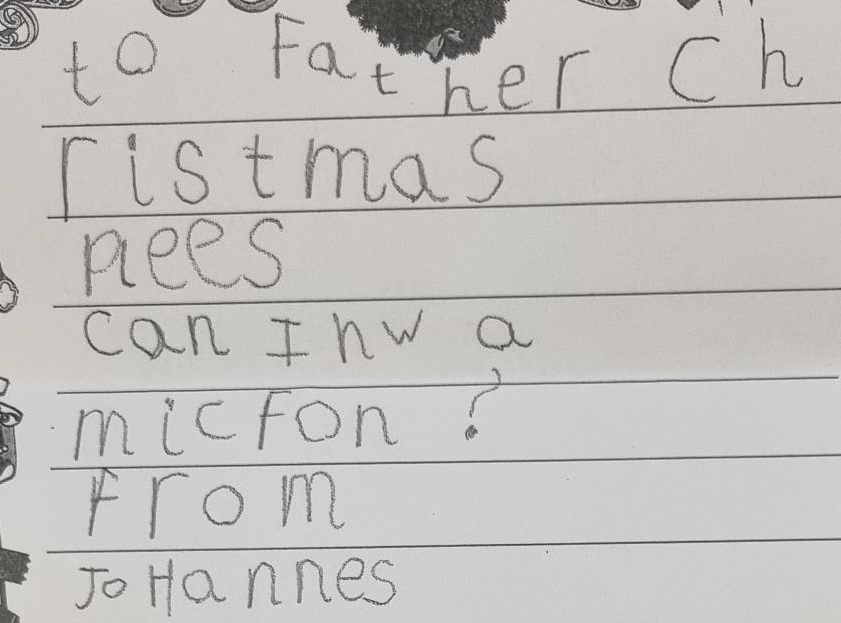 to Father Ch
ristmas
plees
can I hw a
micfon?
From
JoHannes